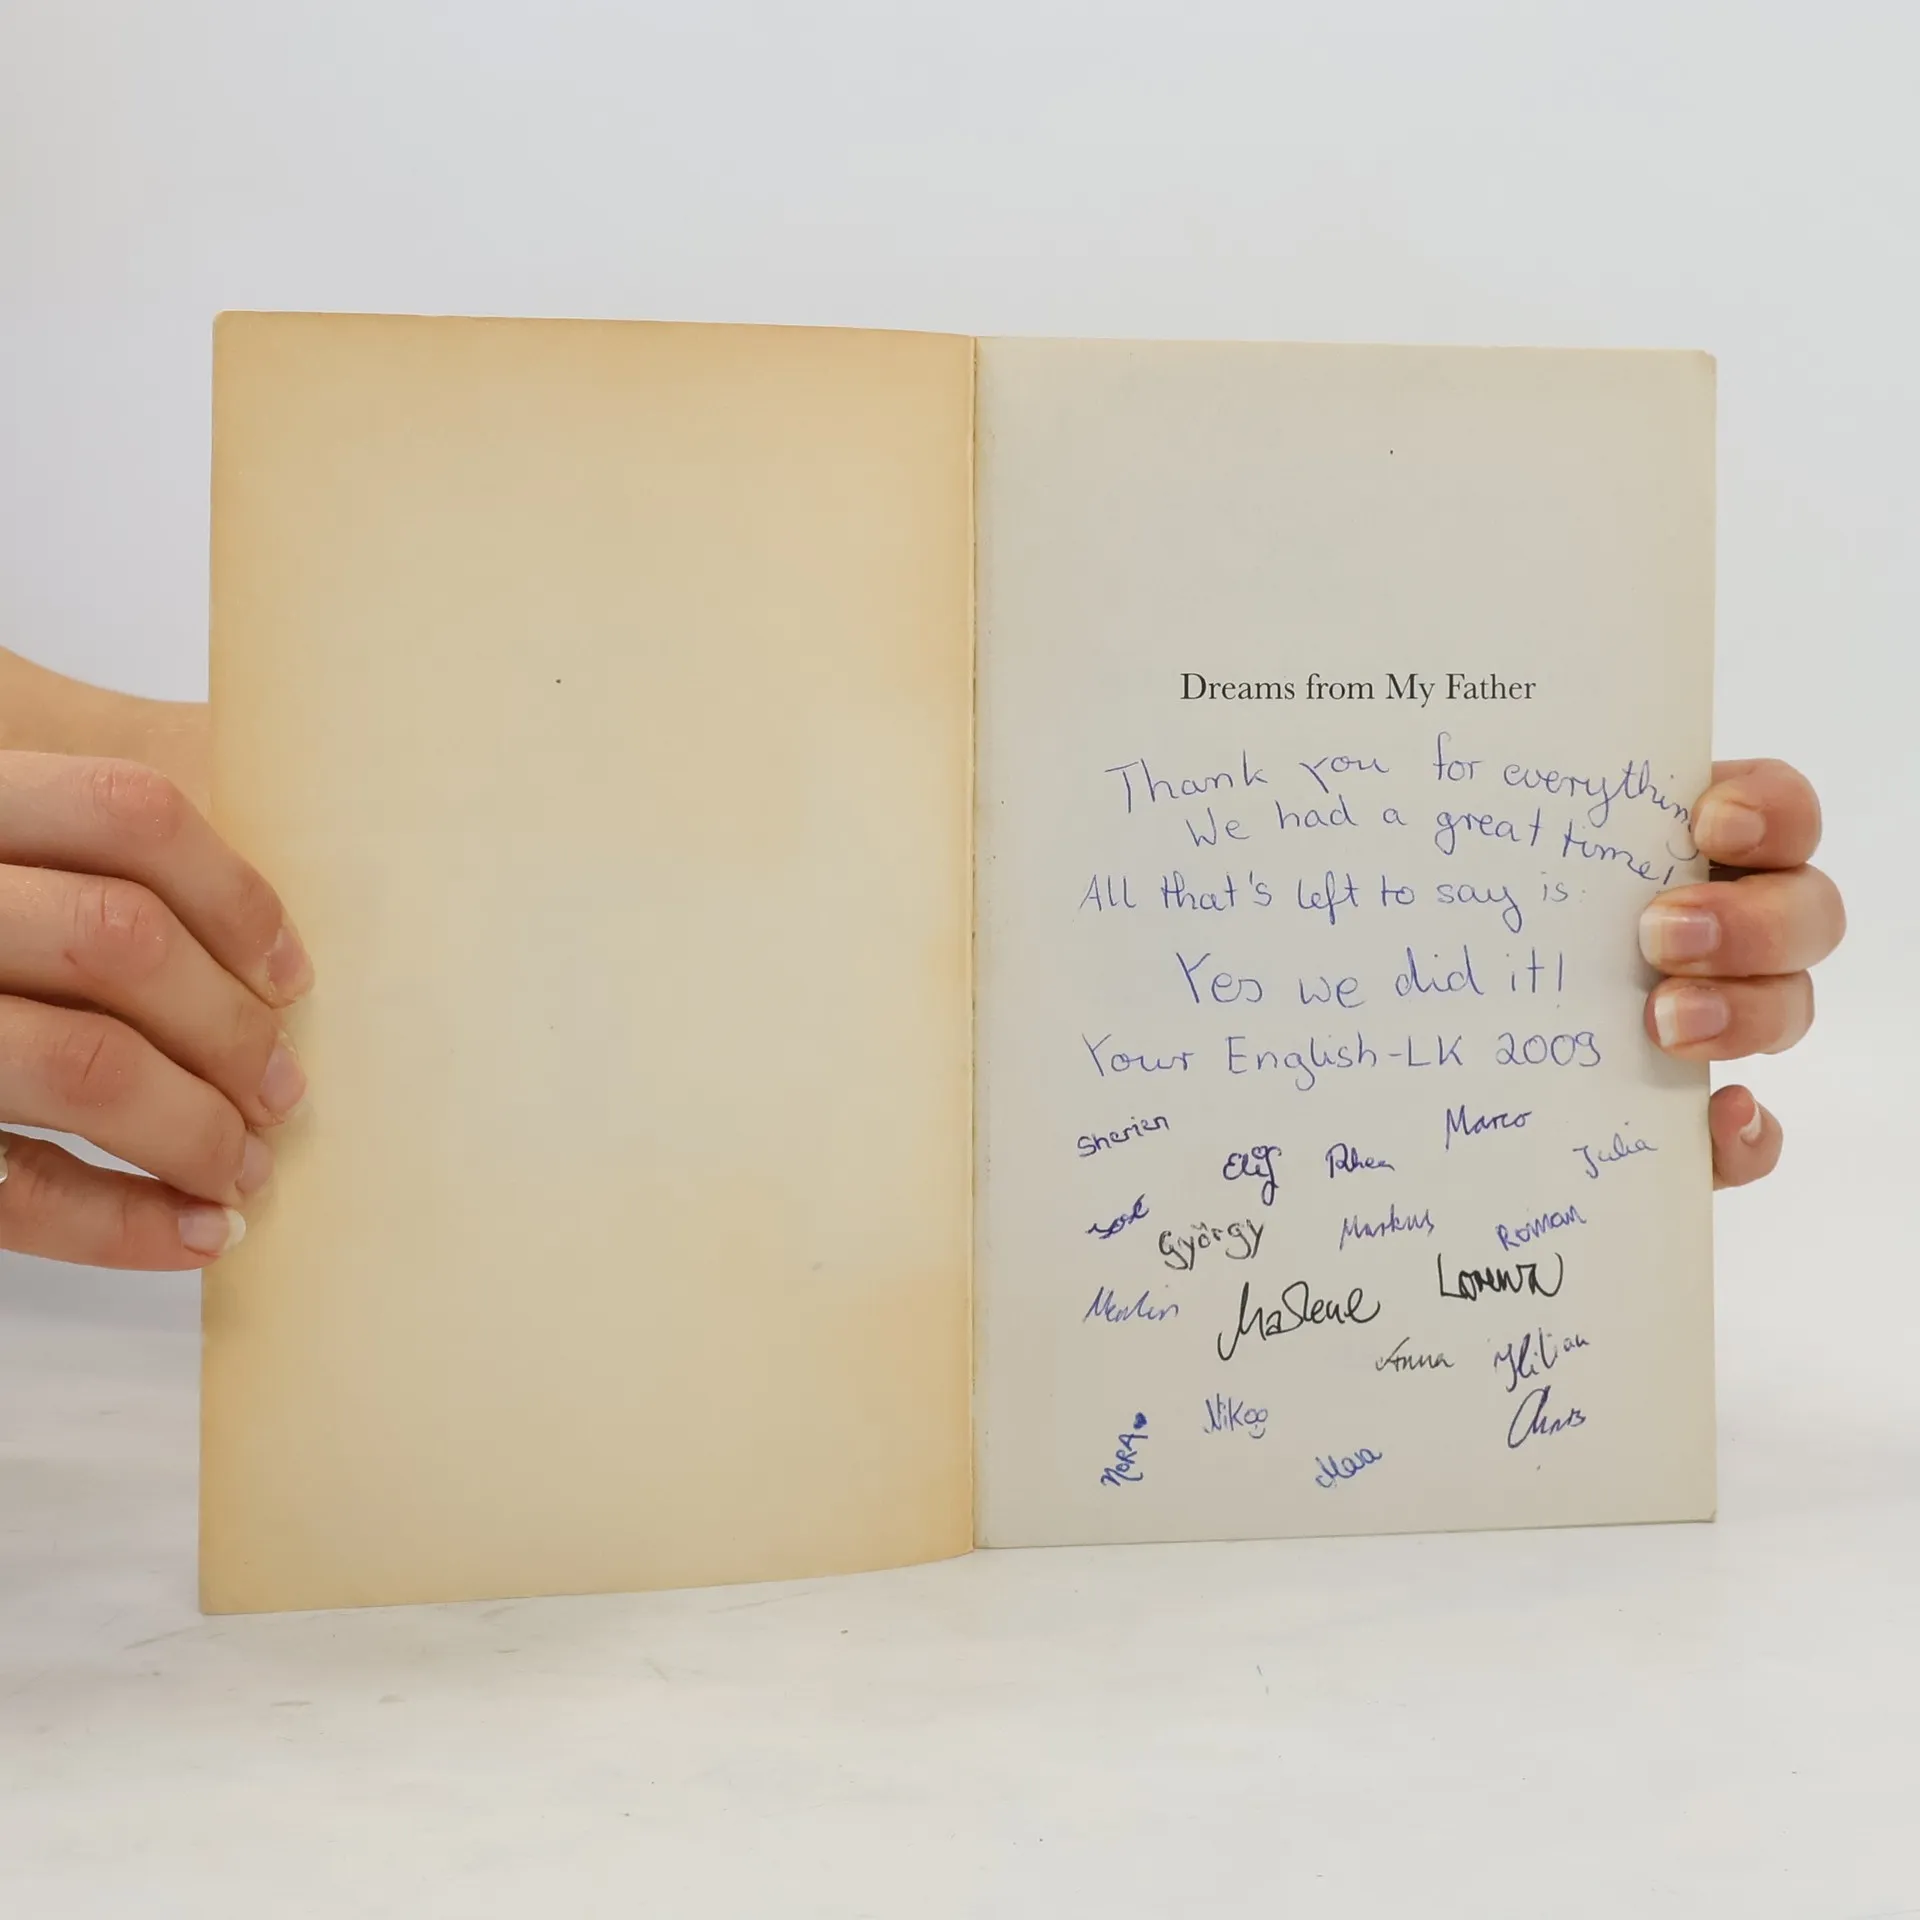 Dreams from My Father
Thank you for everything
We had a great time!
All that's left to say is:
Yes we did it!
Your English-LK 2009
Sherien
Elif Rhea Marco Julia
György Markus Roman
Merlin Marlene Lorenza
Anna Kilian
Nora Niko Chris
Mara